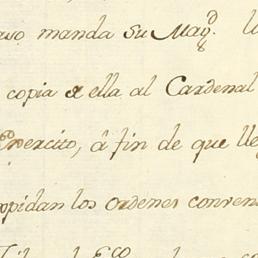 manda su Mag.d
copia de ella al Cardenal
Exercito, â fin de que lle
pidan los ordenes conven